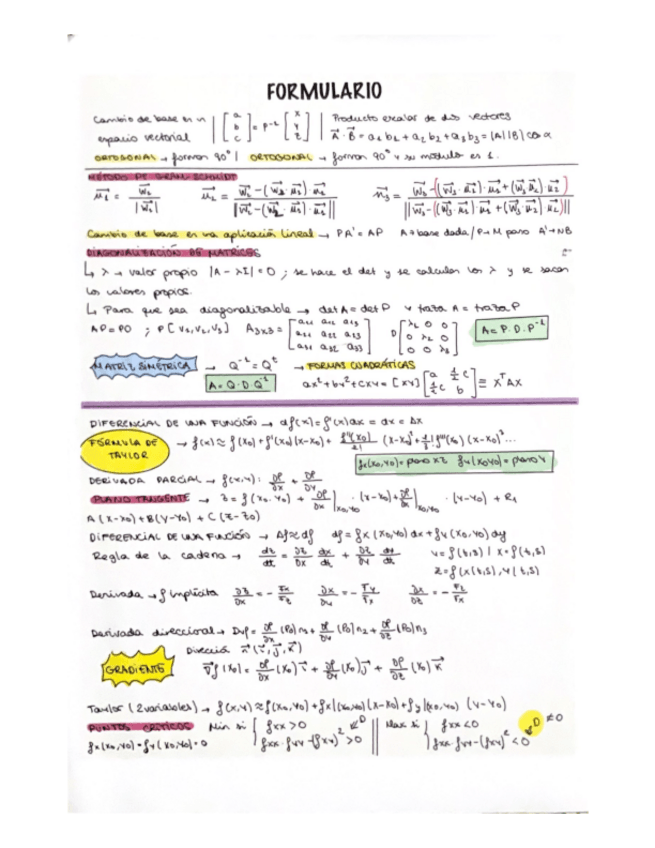 FORMULARIO
Cambio de base en un | [a b c] = P⁻¹ [x y z] | Producto escalar de dos vectores
espacio vectorial A⃗·B⃗ = a₁b₁ + a₂b₂ + a₃b₃ = |A||B| cos α
ORTOGONAL → forman 90° | ORTOGONAL → forman 90° y su módulo es 1.
MÉTODO DE GRAM SCHMIDT
Cambio de base en una aplicación lineal → PA' = AP A→base dada / P→M paso A'→NB
DIAGONALIZACIÓN DE MATRICES
↳ λ → valor propio |A - λI| = 0 ; se hace el det y se calculan los λ y se sacan
los valores propios.
↳ Para que sea diagonalizable → det A = det D y traza A = traza
AP = PD ; P[V₁, V₂, V₃] A₃ₓ₃ = D A = P·D·P⁻¹
MATRIZ SIMÉTRICA → Q⁻¹ = Qᵗ → FORMAS CUADRÁTICAS
A = Q·D·Qᵗ ax² + by² + cxy = [x y] [a ½c ½c b] ≡ XᵀAX
DIFERENCIAL DE UNA FUNCIÓN → df(x) = f'(x) dx = dx = Δx
FÓRMULA DE TAYLOR → f(x) ≈ f(x₀) + f'(x₀)(x-x₀) + f''(x₀)/2! (x-x₀)² + 1/3! f'''(x₀) (x-x₀)³...
fx(x₀,y₀) = para x fy(x₀y₀) = para y
DERIVADA PARCIAL → f(x,y): ∂f/∂x + ∂f/∂y
PLANO TANGENTE → z = f(x₀,y₀) + ∂f/∂x |x₀,y₀ · (x-x₀) + ∂f/∂y |x₀,y₀ · (y-y₀) + R₁
A(x-x₀) + B(y-y₀) + C(z-z₀)
DIFERENCIAL DE UNA FUNCIÓN → Δf≈df df = fx(x₀,y₀) dx + fy(x₀,y₀) dy
Regla de la cadena → dz/dt = ∂z/∂x dx/dt + ∂z/∂y dy/dt y = f(t,s) / x = f(t,s)
z = f(x(t,s), y(t,s)
Derivada → f implícita ∂z/∂x = - Fx/Fz ∂x/∂y = - Fy/Fx ∂x/∂z = - Fz/Fx
Derivada direccional → Dvf = ∂f/∂x (P₀) n₁ + ∂f/∂y (P₀) n₂ + ∂f/∂z (P₀) n₃
Dirección (i⃗, j⃗, k⃗)
GRADIENTE ∇⃗f(x₀) = ∂f/∂x (x₀) i⃗ + ∂f/∂y (x₀) j⃗ + ∂f/∂z (x₀) k⃗
Taylor (2 variables) → f(x,y) ≈ f(x₀,y₀) + fx|(x₀,y₀) (x-x₀) + fy|(x₀,y₀) (y-y₀)
PUNTOS CRÍTICOS Min si { fxx > 0 D || Max si { fxx < 0 D ≠ 0
fx(x₀,y₀) = fy(x₀,y₀) = 0 fxx·fyy - (fxy)² > 0 fxx·fyy - (fxy)² < 0